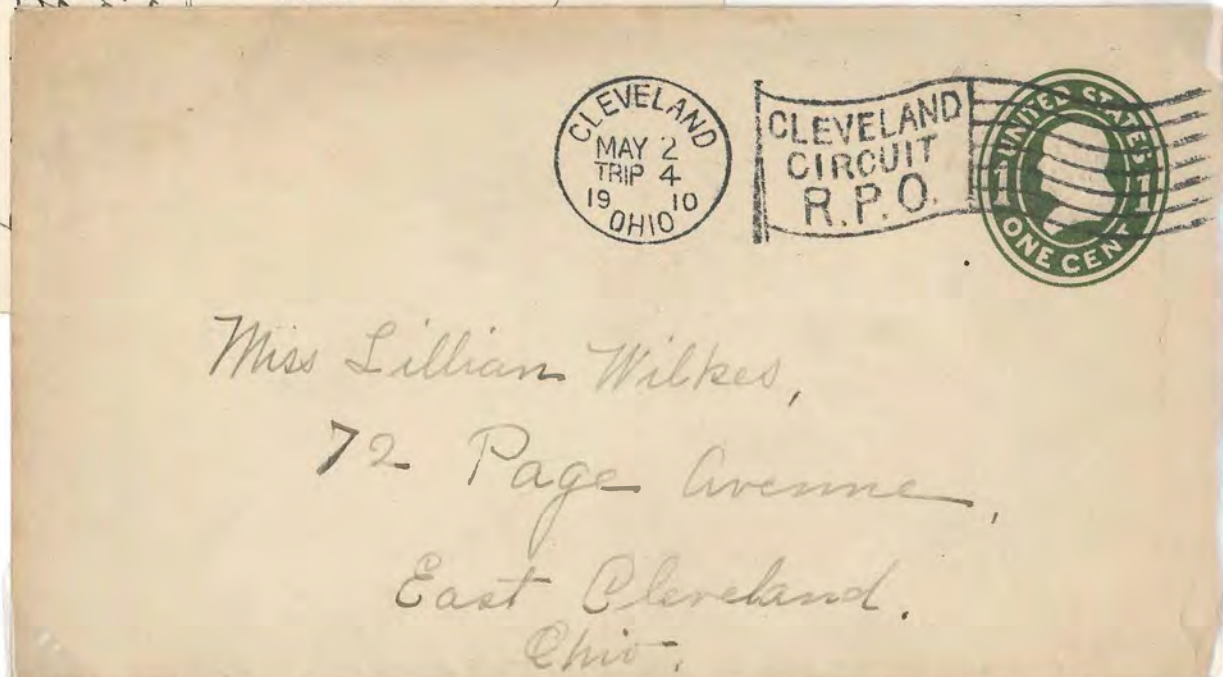 CLEVELAND
MAY 2
TRIP 4
19 10
OHIO
CLEVELAND
CIRCUIT
R.P.O.
UNITED STATES
1 1
ONE CENT
Miss Lillian Wilkes,
72 Page Avenue,
East Cleveland.
Ohio.